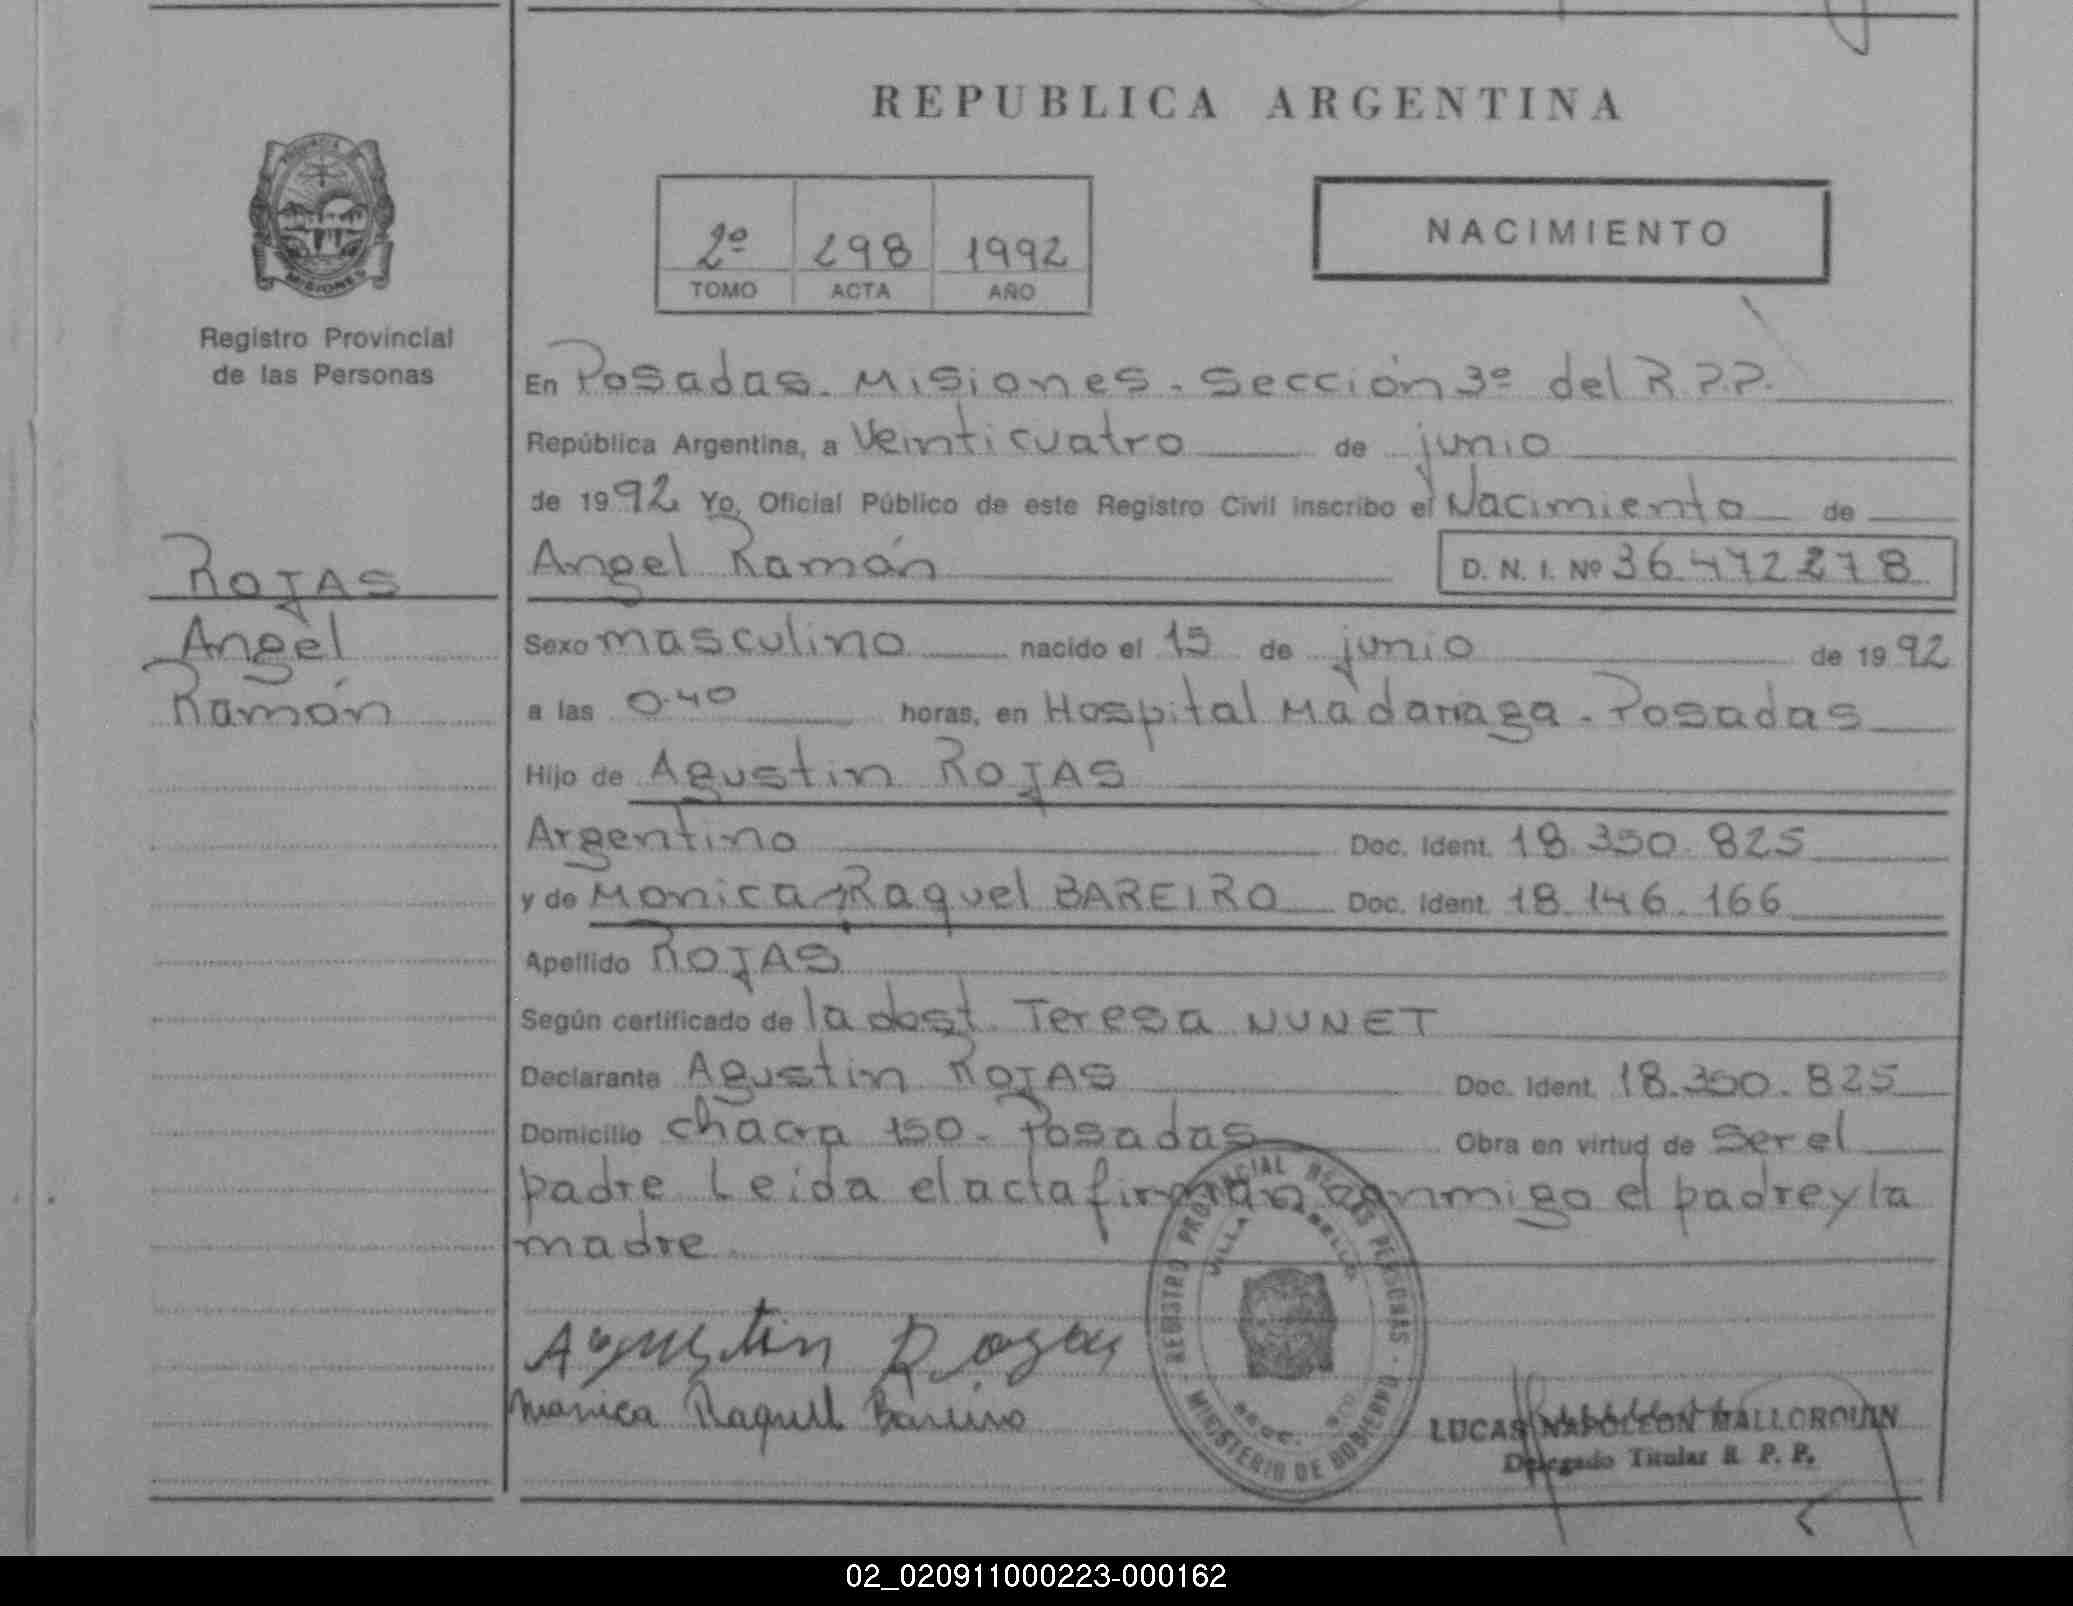 REPUBLICA ARGENTINA
PROVINCIA
MISIONES
Registro Provincial
de las Personas
2º 298 1992
TOMO ACTA AÑO
NACIMIENTO
En Posadas. Misiones. Sección 3º del R.P.P.
República Argentina, a Veinticuatro de junio
de 1992 Yo, Oficial Público de este Registro Civil inscribo el Nacimiento de
ROJAS
Angel
Ramón
Angel Ramón D. N. I. Nº 36.472278
Sexo masculino nacido el 15 de junio de 1992
a las 0.40 horas, en Hospital Madariaga. Posadas
Hijo de Agustin ROJAS
Argentino Doc. Ident. 18.350.825
y de Monica Raquel BAREIRO Doc. Ident. 18.146.166
Apellido ROJAS
Según certificado de la obst. Teresa NUNET
Declarante Agustin ROJAS Doc. Ident. 18.350.825
Domicilio chacra 150. Posadas Obra en virtud de ser el
padre Leida el acta firman conmigo el padre y la
madre
REGISTRO PROVINCIAL DE LAS PERSONAS
VILLA CABELLO
MINISTERIO DE GOBIERNO
Agustin Rojas
Monica Raquel Bareiro
LUCAS NAPOLEON MALLORQUIN
Delegado Titular R. P. P.
02_020911000223-000162